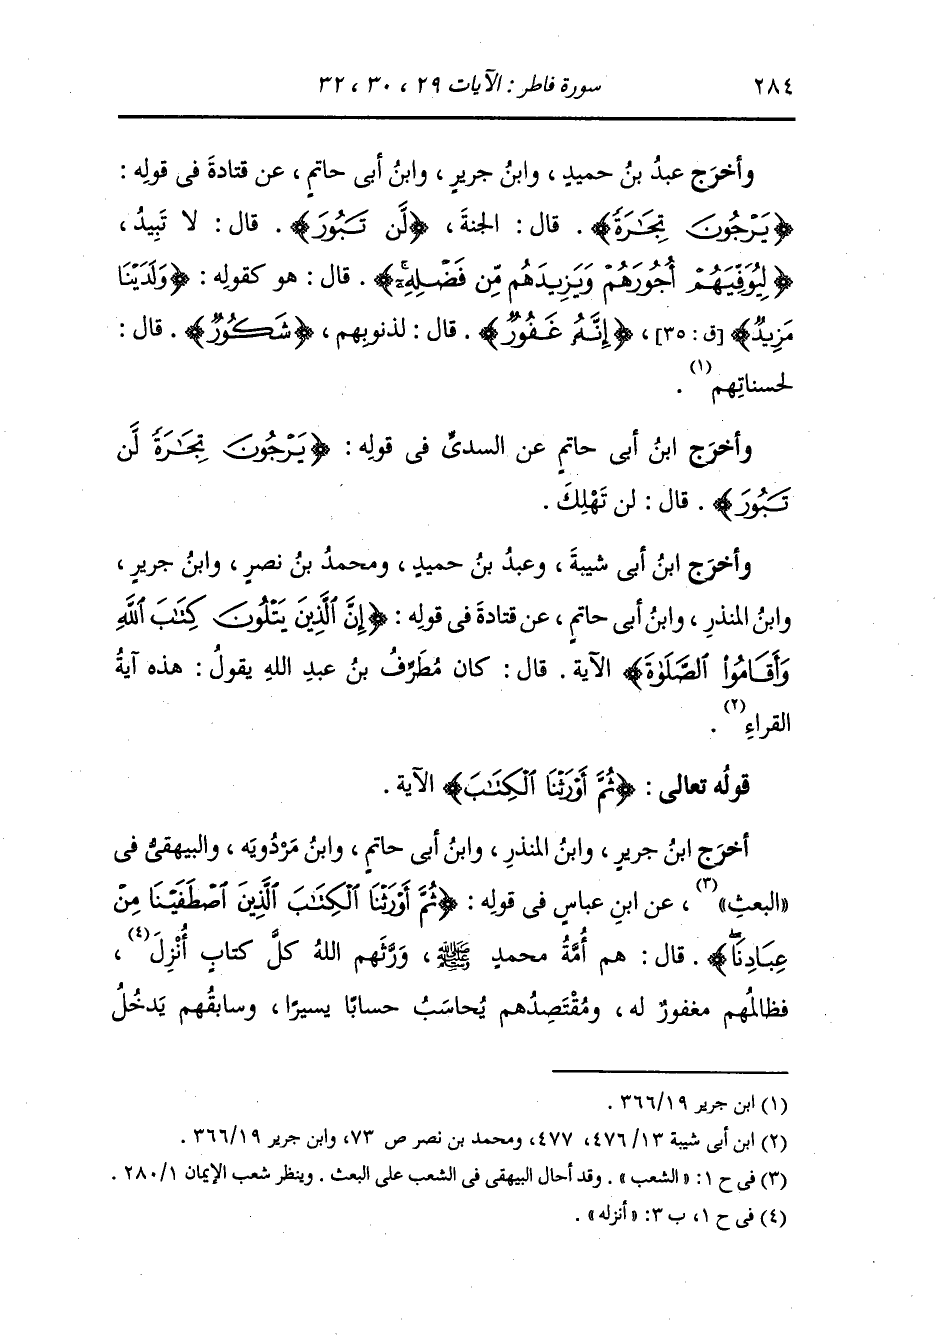 ٢٨٤ سورة فاطر : الآيات ٢٩ ، ٣٠ ، ٣٢
وأخرَج عبدُ بنُ حميدٍ ، وابنُ جريرٍ ، وابنُ أبى حاتمٍ ، عن قتادةَ فى قولِه :
﴿يَرْجُونَ تِجَٰرَةً﴾ . قال : الجنةَ ، ﴿لَّن تَبُورَ﴾ . قال : لا تَبِيدُ ،
﴿لِيُوَفِّيَهُمْ أُجُورَهُمْ وَيَزِيدَهُم مِّن فَضْلِهِۦٓ﴾ . قال : هو كقولِه : ﴿وَلَدَيْنَا
مَزِيدٌ﴾ [ق : ٣٥] ، ﴿إِنَّهُۥ غَفُورٌ﴾ . قال : لذنوبِهم ، ﴿شَكُورٌ﴾ . قال :
لحسناتِهم(١) .
وأخرَج ابنُ أبى حاتمٍ عن السدىِّ فى قولِه : ﴿يَرْجُونَ تِجَٰرَةً لَّن
تَبُورَ﴾ . قال : لن تَهْلِكَ .
وأخرَج ابنُ أبى شيبةَ ، وعبدُ بنُ حميدٍ ، ومحمدُ بنُ نصرٍ ، وابنُ جريرٍ ،
وابنُ المنذرِ ، وابنُ أبى حاتمٍ ، عن قتادةَ فى قولِه : ﴿إِنَّ ٱلَّذِينَ يَتْلُونَ كِتَٰبَ ٱللَّهِ
وَأَقَامُوا۟ ٱلصَّلَوٰةَ﴾ الآية . قال : كان مُطَرِّفُ بنُ عبدِ اللهِ يقولُ : هذه آيةُ
القراءِ(٢) .
قولُه تعالى : ﴿ثُمَّ أَوْرَثْنَا ٱلْكِتَٰبَ﴾ الآية .
أخرَج ابنُ جريرٍ ، وابنُ المنذرِ ، وابنُ أبى حاتمٍ ، وابنُ مَرْدُويَه ، والبيهقىُّ فى
«البعثِ»(٣) ، عن ابنِ عباسٍ فى قولِه : ﴿ثُمَّ أَوْرَثْنَا ٱلْكِتَٰبَ ٱلَّذِينَ ٱصْطَفَيْنَا مِنْ
عِبَادِنَاۖ﴾ . قال : هم أُمَّةُ محمدٍ ﷺ ، وَرَّثَهم اللهُ كلَّ كتابٍ أُنْزِلَ(٤) ،
فظالمُهم مغفورٌ له ، ومُقْتَصِدُهم يُحاسَبُ حسابًا يسيرًا ، وسابقُهم يَدخُلُ
(١) ابن جرير ٣٦٦/١٩ .
(٢) ابن أبى شيبة ١٣/ ٤٧٦، ٤٧٧، ومحمد بن نصر ص ٧٣، وابن جرير ٣٦٦/١٩ .
(٣) فى ح ١: « الشعب » . وقد أحال البيهقى فى الشعب على البعث . وينظر شعب الإيمان ٢٨٠/١ .
(٤) فى ح ١، ب ٣: « أنزله » .